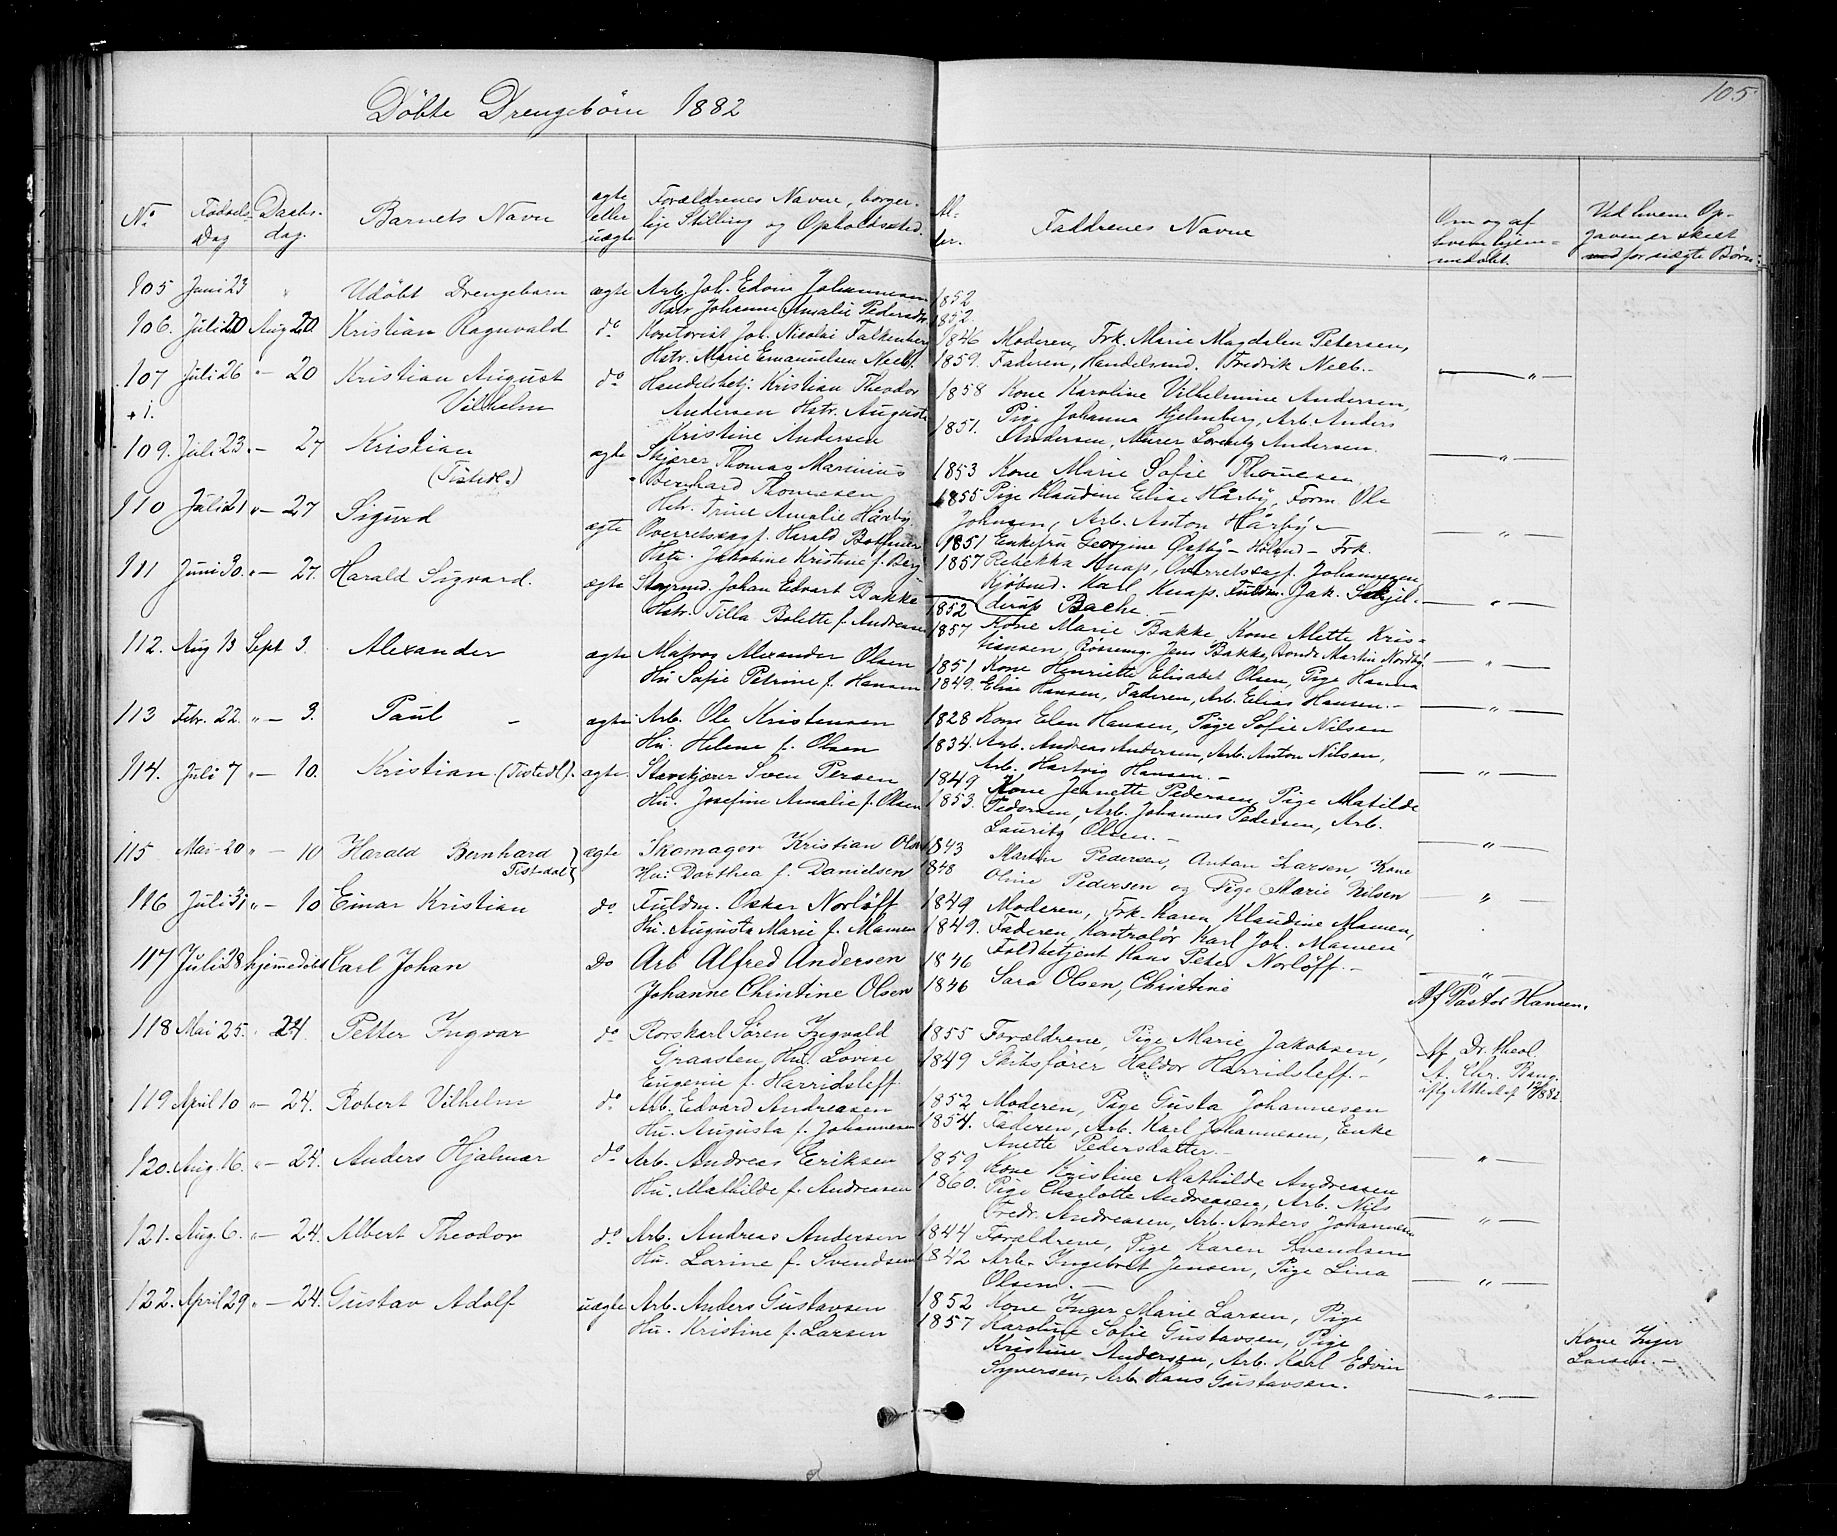 105
Döbte Drengebörn 1882
No
Födsels Dag
Daabs-dag.
Barnets Navn
ægte eller uægte
Forældrenes Navne, borger-
lige Stilling og Opholdssted.
Al-der.
Faddrenes Navne
Om og af
hvem hjem-
medøbt.
Ved hvem Op-
gaven er skeet
for uægte Børn.
105 Juni 23 " Udöbt Drengebarn ægte Arb. Joh. Edvin Johannesen 1852
Hstr Johanne Amalie Pedersdtr 1852.
106. Juli 20 Aug 20. Kristian Ragnvald do Kontorist Joh. Nicolai Falkenberg 1846 Moderen, Frk. Marie Magdalen Petersen,
Hstr. Marie Emanuelsen Neeb. 1859. Faderen, Handelsmd. Fredrik Neeb.- — " —
107 Juli 26 " - 20 Kristian August do Handelsbetj. Kristian Theodor 1858 Kone Karoline Vilhelmine Andersen,
+1. Vilhelm Andersen Hstr. Auguste Pige Johanna Hjelmberg, Arb. Anders
Kristine Andersen 1851. Andersen, Murer Lorentz Andersen. — " —
109. Juli 23. " - 27 Kristian ægte Skjærer Thomas Marinius 1853 Kone Marie Sofie Thomesen
(Tistedl.) Bernhard Thomesen 1855 Pige Klaudine Elise Hårby, Form. Ole
Hstr. Trine Amalie Hårby. Johnsen, Arb. Anton Hårby.- — " —
110 Juli 21 " - 27 Sigurd ægte Overretssagf. Harald Bothner 1851 Enkefru Georgine Østby - Holund - Frk.
Hstr. Jakobine Kristine f. Berg 1857 Rebekka Knap, Overretssagf. Johannesen,
Kjöbmd. Karl Knap. Fuldm. Jak. Skjel-
derup Bache. — " —
111 Juni 30. " - 27. Harald Sigvard. ægte Stuermd. Johan Edvart Bakke 1852
Hstr. Tilla Bolette f. Andreasen 1857 Kone Marie Bakke, Kone Alette Kris-
tiansen, Jens Bakke, Bonde Martin Nordby — " —
112. Aug 13 Sept 3. Alexander ægte Matros Alexander Olsen 1851 Kone Henriette Elisabet Olsen, Pige Hanna
Hu Sofie Petrine f. Hansen 1849. Elise Hansen, Faderen, Arb. Elias Hansen.- — " —
113 Febr. 22. " - 3. Paul - ægte Arb. Ole Kristensen 1828 Kone Elen Hansen, Pige Sofie Nilsen
Hu. Helene f. Olsen 1834. Arb. Andreas Andersen, Arb. Anton Nilsen,
Arb. Hartvig Hansen.- — " —
114. Juli 7 " - 10. Kristian. (Tistedl). ægte. Stavskjærer Sven Persen 1849 Kone Jeanette Pedersen, Pige Matilde
Hu. Josefine Amalie f. Olsen 1853. Pedersen, Arb. Johannes Pedersen, Arb.
Lauritz Olsen.- — " —
115 Mai 20 " - 10 Harald Bernhard ægte Skomager Kristian Olsen 1843 Martin Pedersen, Anton Larsen, Kone
Tistedal Hu. Dorthea f. Danielsen 1848 Oline Pedersen og Pige Marie Nilsen " —
116 Juli 31 " - 10 Einar Kristian do. Fuldm. Oskar Norløff 1849 Moderen, Frk. Karen Klaudine Mamen,
Hu. Augusta Marie f. Mamen 1849. Faderen, Kontrolör Karl Joh. Mamen
Toldbetjent Hans Peter Norløff.- — " —
117 Juli 28 hjemmedöbt Carl Johan Do Arb Alfred Andersen 1846
Johanne Christine Olsen 1846 Sara Olsen, Christine Af Pastor Hansen.
118 Mai 25. " 24. Petter Ingvar do Rorskarl Sören Ingvald 1855 Forældrene, Pige Marie Jakobsen, Af Dr. theol.
Graasten, Hu. Lovise 1849 Skibsförer Haldor Harridsleff.- A. Chr. Bang
Eugenie f. Harridsleff iflg Attest af 12/8 82
119 April 10 " - 24. Robert Vilhelm do Arb. Edvard Andreasen 1852 Moderen, Pige Gusta Johannesen
Hu. Augusta f. Johannesen 1854. Faderen, Arb. Karl Johannesen, Enke
Anette Pedersdatter.- — " —
120. Aug. 16. " - 24. Anders Hjalmar do Arb. Andreas Eriksen 1859 Kone Kristine Mathilde Andreasen
Hu. Mathilde f. Andreasen 1860. Pige Charlotte Andreasen, Arb. Nils
Fredr. Andreasen, Arb. Anders Johannesen — " —
121. Aug. 6. " - 24. Albert Theodor do Arb. Andreas Andersen 1844 Forældrene, Pige Karen Svendsen
Hu. Larine f. Svendsen 1842 Arb. Ingebret Jensen, Pige Lina
Olsen.- — " —
122. April 29 " - 24. Gustav Adolf uægte Arb. Anders Gustavsen 1852 Kone Inger Marie Larsen, Pige
Hu. Kristine f. Larsen 1857 Karoline Sofie Gustavsen, Pige Kone Inger
Kristine Andersen, Arb. Karl Edvin Larsen.-
Syversen, Arb. Hans Gustavsen. — " —